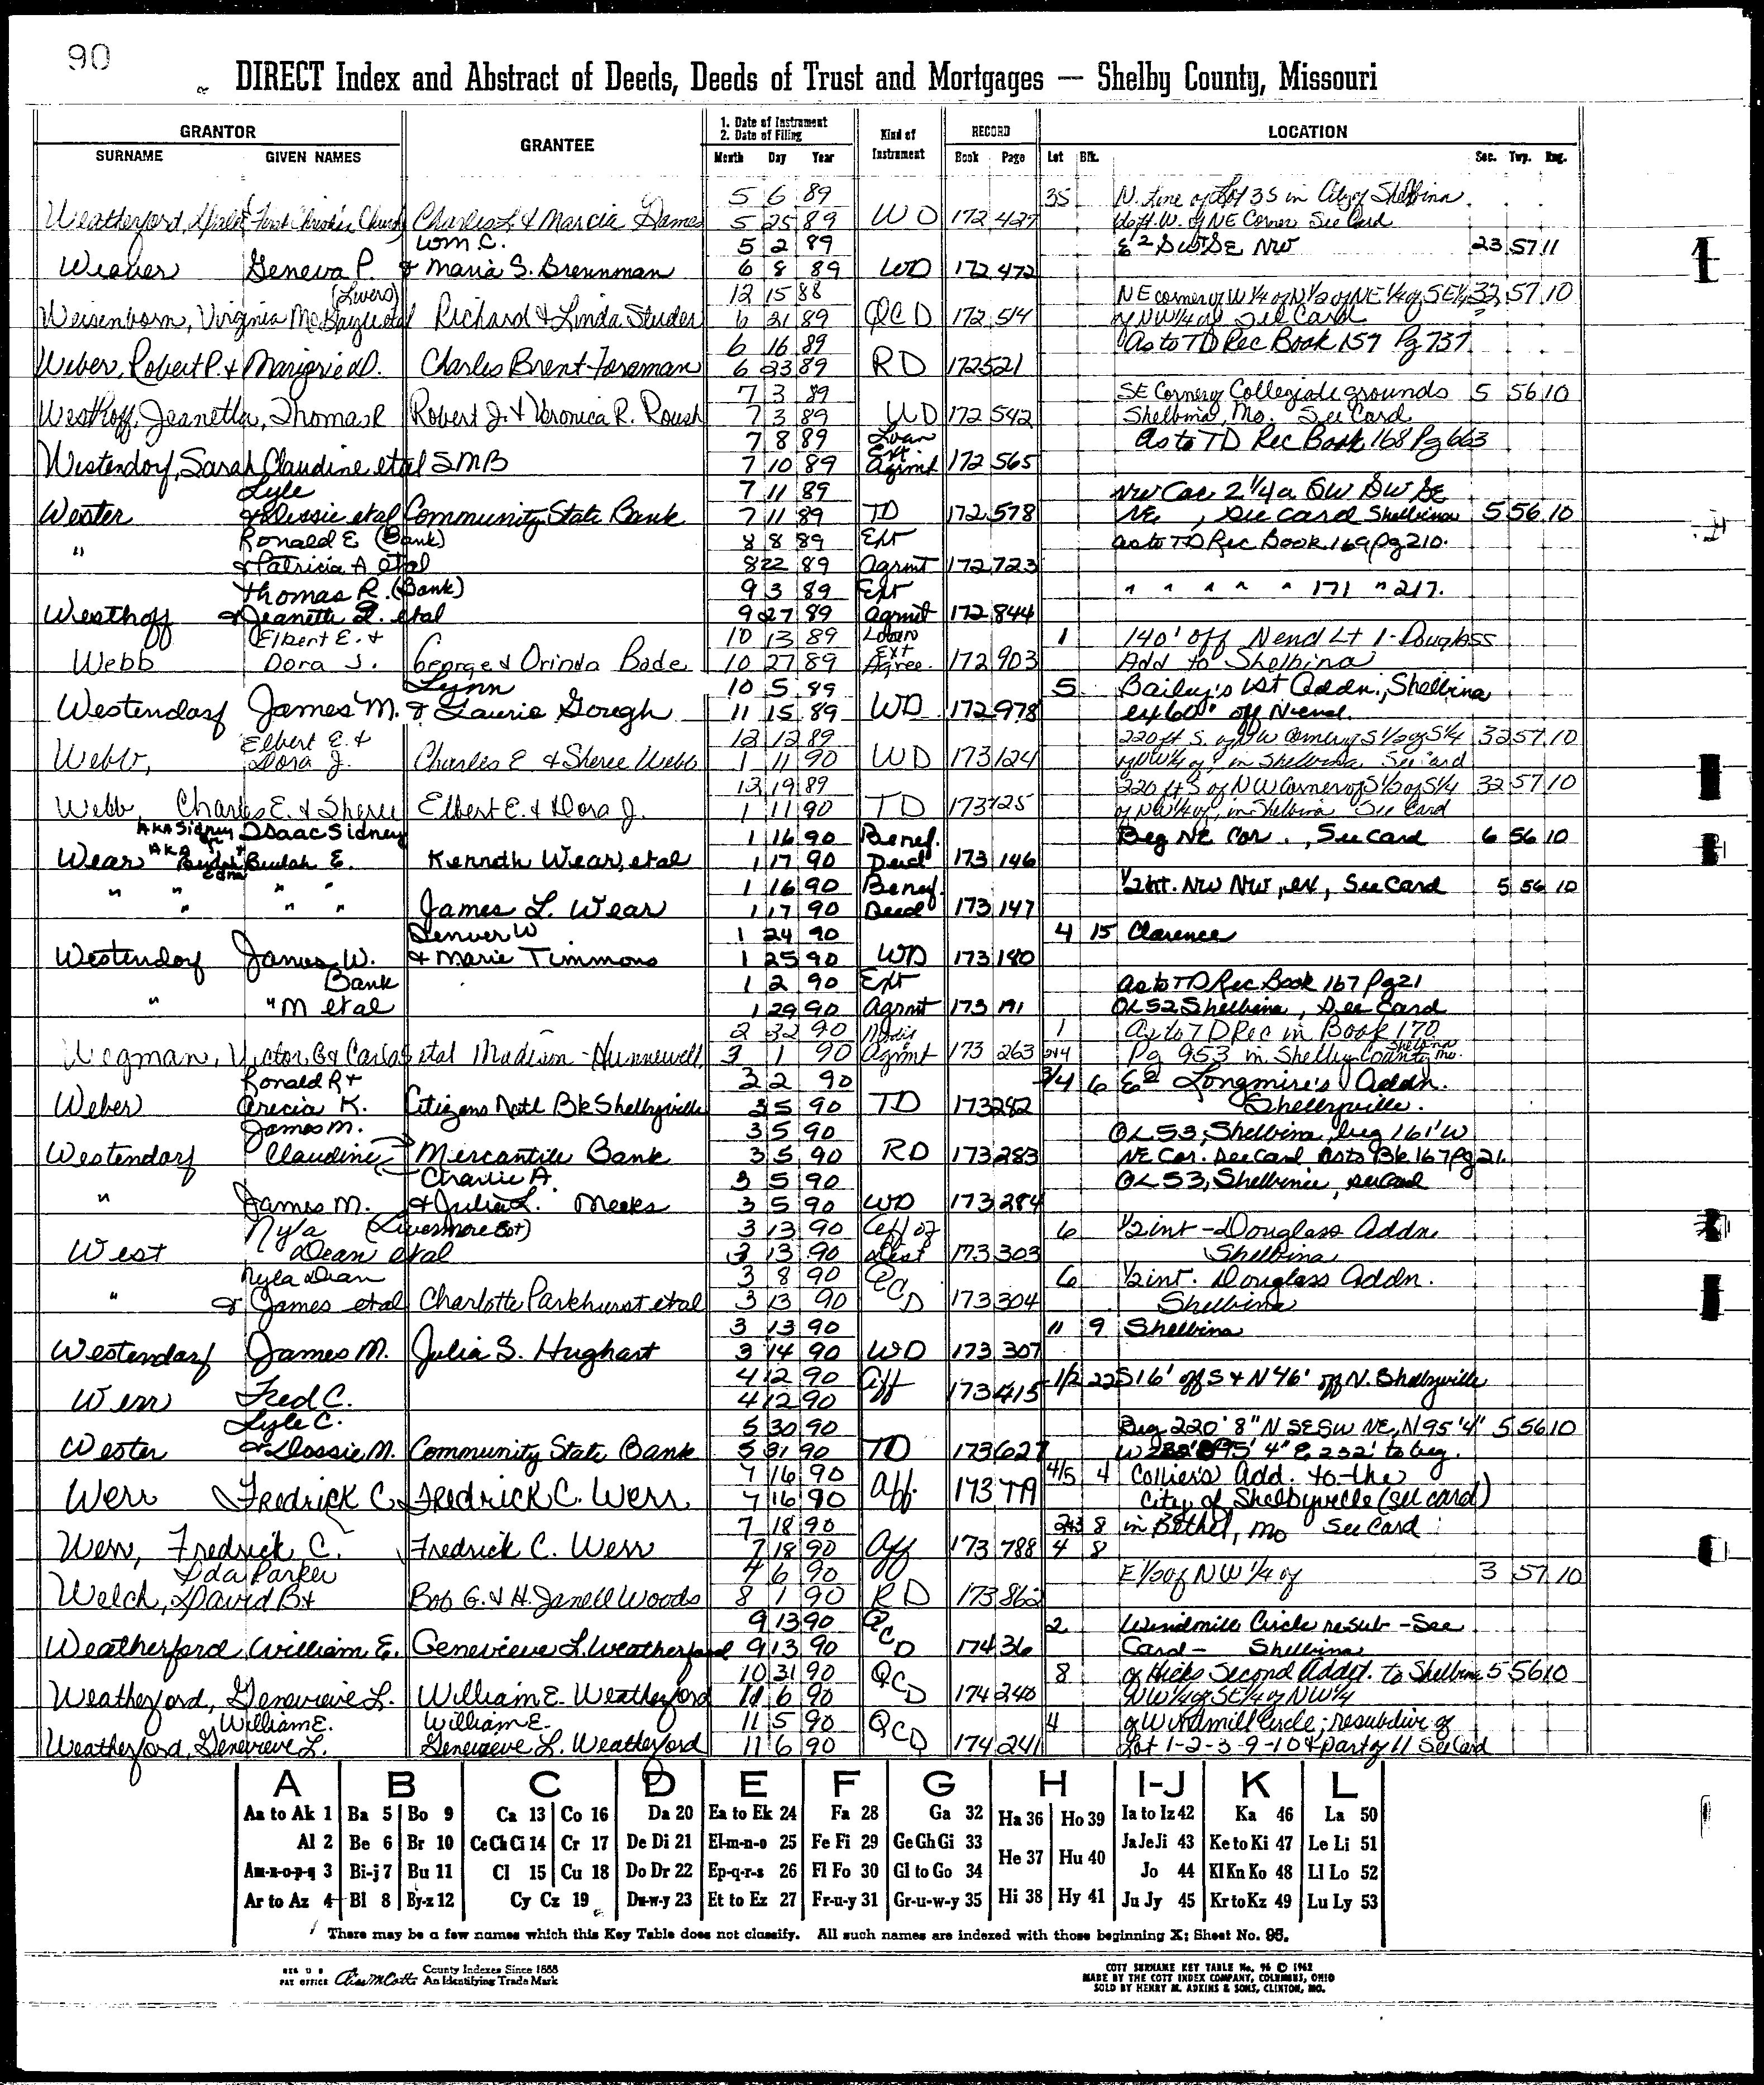 90
DIRECT Index and Abstract of Deeds, Deeds of Trust and Mortgages — Shelby County, Missouri
GRANTOR
SURNAME GIVEN NAMES
GRANTEE
1. Date of Instrument
2. Date of Filing
Month Day Year
Kind of Instrument
RECORD
Book Page
LOCATION
Lot Blk. Sec. Twp. Rng.
5 6 89 35 N. Line of Lot 35 in City of Shelbina
Weatherford, First Christian Church Charles L & Marcia 5 25 89 WD 172 427 W. of NE Corner See Card
Wm C. 5 2 89 E2 SW SE NW 23 57 11
Weaver Geneva P. & Maria S. Brennman 6 8 89 WD 172 472
(Livers) 12 15 88 NE corner of W 1/4 of N 1/2 of NE 1/4 of SE 1/4 32 57 10
Weisenborn, Virginia etal Richard & Linda Studer 6 21 89 QCD 172 514 of NW 1/4 of See Card
6 16 89 As to TD Rec Book 157 Pg 737
Weber, Robert P. & Marjorie D. Charles Brent Foreman 6 23 89 RD 172 521
7 3 89 SE Corner of Collegiate grounds 5 56 10
Westhoff, Jeanetta, Thomas R Robert J. & Veronica R. Roush 7 3 89 WD 172 542 Shelbina, Mo. See Card
7 8 89 Loan Ext As to TD Rec Book 168 Pg 663
Westendorf, Sarah Claudine etal SMB 7 10 89 Agrmt 172 565
Lyle 7 11 89 NW Cor 2 1/4 a SW SW SE
Wester & Dessie etal Community State Bank 7 11 89 TD 172 578 NE, See card Shelbina 5 56 10
" Ronald E (Bank) 8 8 89 Ext as to TD Rec Book 169 pg 210.
& Patricia A etal 8 22 89 Agrmt 172 723
Thomas R. (Bank) 9 3 89 Ext " " " " " 171 " 217.
Westhoff & Jeanette L. etal 9 27 89 Agrmt 172 844
Elbert E. & 10 13 89 Loan Ext 1 140' off N end Lt 1 - Douglass
Webb Dora J. George & Orinda Bode 10 27 89 Agree. 172 903 Add to Shelbina
Lynn 10 5 89 5 Bailey's 1st Addn., Shelbina
Westendorf James M. & Laurie Gough 11 15 89 WD 172 978 ex 60' off N end.
Elbert E. & 12 12 89 220 ft S. of NW Corner of S 1/2 of S 1/4 32 57 10
Webb, Dora J. Charles E & Sheree Webb 1 11 90 WD 173 124 of NW 1/4 of, in Shelbina See Card
12 19 89 220 ft S of NW Corner of S 1/2 of S 1/4 32 57 10
Webb, Charles E. & Sheree Elbert E. & Dora J. 1 11 90 TD 173 125 of NW 1/4 of, in Shelbina See Card
AKA Sidney Isaac Sidney & 1 16 90 Benef. Beg NE Cor., See Card 6 56 10
Wear AKA Beulah Edna Beulah E. Kenneth Wear, etal 1 17 90 Deed 173 146
" " " " 1 16 90 Benef. 1/2 int. NW NW, ex, See Card 5 56 10
" " " James L. Wear 1 17 90 Deed 173 147
Denver W 1 24 90 4 15 Clarence
Westendorf James W. & Marie Timmons 1 25 90 WD 173 180
Bank 1 2 90 Ext as to TD Rec Book 167 Pg 21
" " M etal 1 29 90 Agrmt 173 191 OL 52 Shelbina, See Card
2 90 1 As to TD Rec in Book 170
Wegman, Victor G & Carla etal Madison-Hunnewell 3 1 90 Agmt 173 263 Pg 953 in Shelby County Mo. Shelbina
Ronald R & 3 2 90 3/4 6 E2 Longmire's Addn.
Weber Arecia K. Citizens Natl Bk Shelbyville 3 5 90 TD 173 282 Shelbyville.
James M. 3 5 90 OL 53, Shelbina, beg 161' W
Westendorf Claudine Mercantile Bank 3 5 90 RD 173 283 NE Cor. See Card As to Bk 167 Pg 21.
Charlie A. 3 5 90 OL 53, Shelbina, see Card
" James M. & Julia L. Meeks 3 5 90 WD 173 284
Nyla (Livermore Est) 3 13 90 Aff of 6 1/2 int - Douglass Addn
West Dean etal 3 13 90 173 303 Shelbina
Nyla Dean 3 8 90 QCD 6 1/2 int. Douglass Addn.
" & James etal Charlotte Parkhurst etal 3 13 90 173 304 Shelbina
3 13 90 11 9 Shelbina
Westendorf James M. Julia S. Hughart 3 14 90 WD 173 307
4 12 90 1/2 22 S 16' off S & N 46' off N. Shelbyville
Werr Fred C. 4 12 90 Aff 173 415
Lyle C. 5 30 90 Beg 220' 8" N SE SW NE, N 95' 4" 5 56 10
Wester & Dossie M. Community State Bank 5 31 90 TD 173 627 W 232' S 95' 4" E 232' to beg.
7 16 90 4/5 4 Collier's Add. to the
Werr Fredrick C. Fredrick C. Werr 7 16 90 Aff. 173 779 City of Shelbyville (see card)
7 18 90 2&3 8 in Bethel, Mo See Card
Werr, Fredrick C. Fredrick C. Werr 7 18 90 Aff 173 788 4 8
Ida Parker 4 6 90 E 1/2 of NW 1/4 of 3 57 10
Welch, David B & Bob G. & H. Janell Woods 8 1 90 RD 173 862
9 13 90 QCD 2 Windmill Circle resub - See
Weatherford, William E. Genevieve L. Weatherford 9 13 90 174 36 Card - Shelbina
10 31 90 QCD 8 of Hicks Second Addit. to Shelbina 5 56 10
Weatherford, Genevieve L. William E. Weatherford 11 6 90 174 240 NW 1/4 of SE 1/4 of NW 1/4
William E. William E. 11 5 90 QCD 4 of Windmill Circle; resubdiv of
Weatherford, Genevieve L. Genevieve L. Weatherford 11 6 90 174 241 Lot 1-2-3-9-10 & part of 11 See Card
A B C D E F G H I-J K L
Aa to Ak 1 Ba 5 Bo 9 Ca 13 Co 16 Da 20 Ea to Ek 24 Fa 28 Ga 32 Ha 36 Ho 39 Ia to Iz 42 Ka 46 La 50
Al 2 Be 6 Br 10 Ce Ch Ci 14 Cr 17 De Di 21 El-m-n-o 25 Fe Fi 29 Ge Gh Gi 33 He 37 Hu 40 Ja Je Ji 43 Ke to Ki 47 Le Li 51
Am-n-o-p-q 3 Bi-j 7 Bu 11 Cl 15 Cu 18 Do Dr 22 Ep-q-r-s 26 Fl Fo 30 Gl to Go 34 Jo 44 Kl Kn Ko 48 Ll Lo 52
Ar to Az 4 Bl 8 By-z 12 Cy Cz 19 Du-w-y 23 Et to Ez 27 Fr-u-y 31 Gr-u-w-y 35 Hi 38 Hy 41 Ju Jy 45 Kr to Kz 49 Lu Ly 53
There may be a few names which this Key Table does not classify. All such names are indexed with those beginning X; Sheet No. 95.
REG U S PAT OFFICE
County Indexes Since 1888
An Identifying Trade Mark
COTT SURNAME KEY TABLE No. 96 © 1962
MADE BY THE COTT INDEX COMPANY, COLUMBUS, OHIO
SOLD BY HENRY M. ADKINS & SONS, CLINTON, MO.